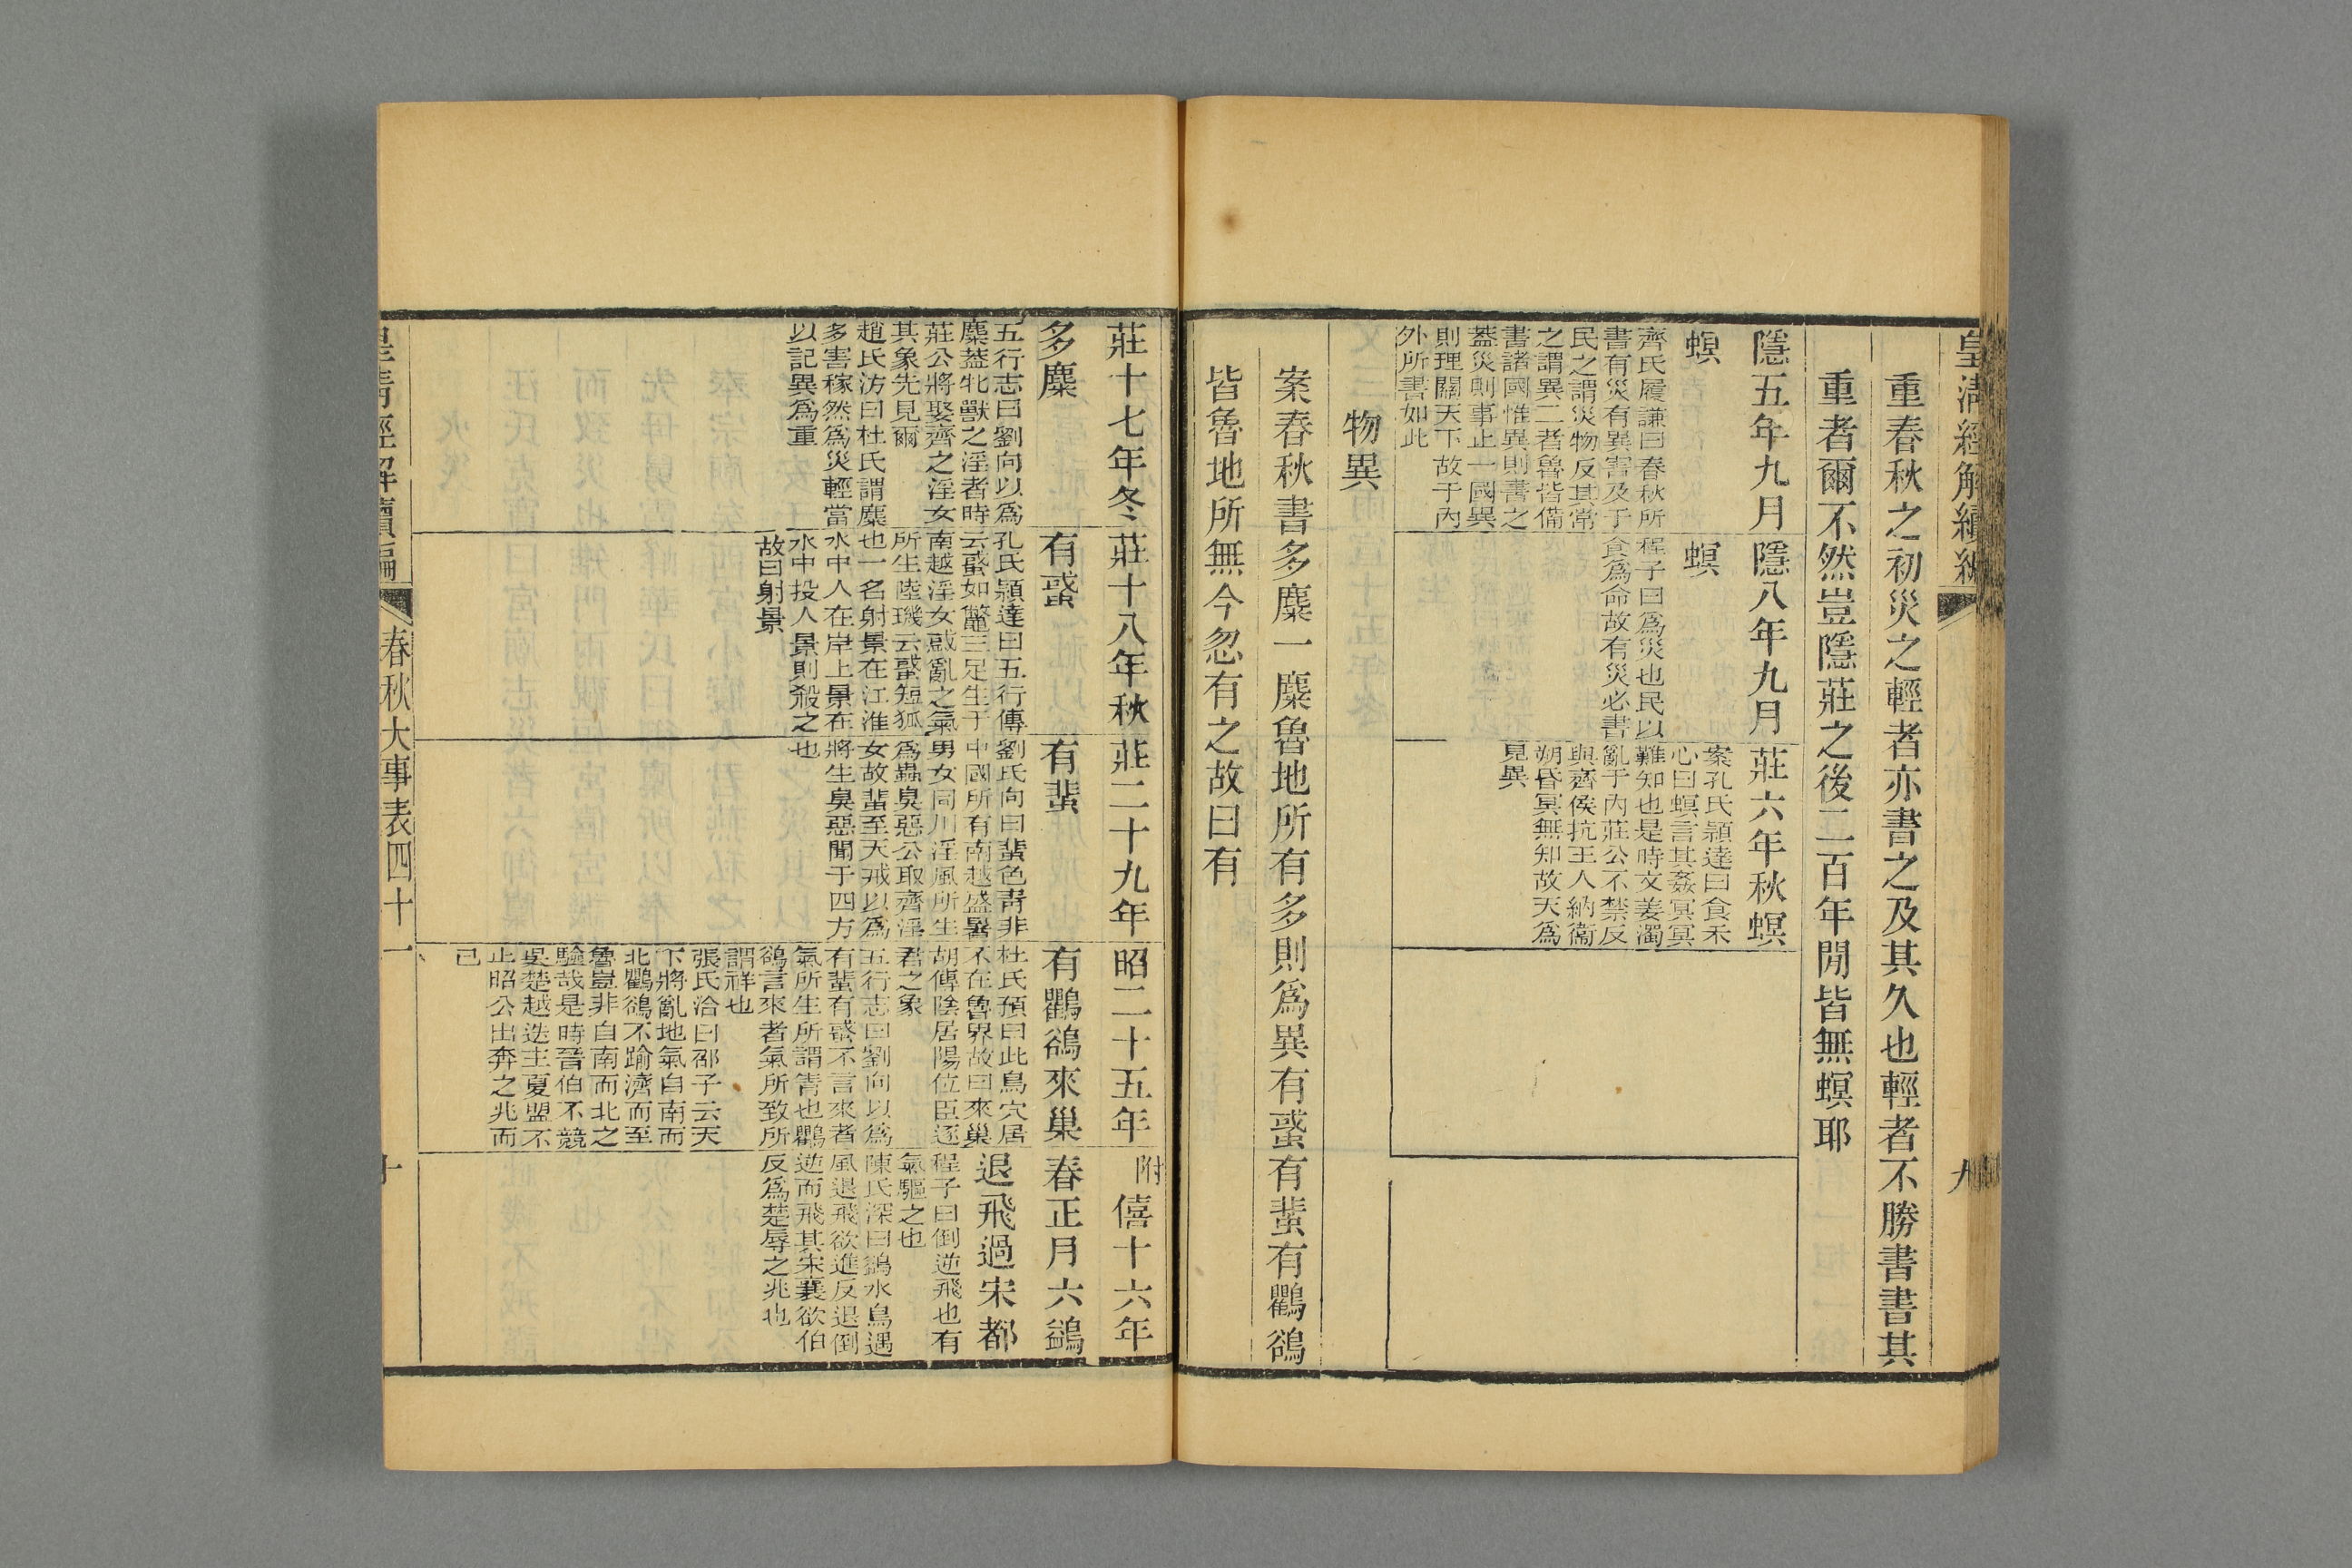 皇清經解續編
九
重春秋之初災之輕者亦書之及其久也輕者不勝書書其
重者爾不然豈隱莊之後二百年閒皆無螟耶
隱五年九月
螟
齊氏履謙曰春秋所
書有災有異害及于
民之謂災物反其常
之謂異二者魯皆備
書諸國惟異則書之
蓋災則事止一國異
則理關天下故于內
外所書如此
隱八年九月
螟
程子曰爲災也民以
食爲命故有災必書
莊六年秋螟
案孔氏穎達曰食禾
心曰螟言其姦冥冥
難知也是時文姜濁
亂于內莊公不禁反
與齊侯抗王人納衞
朔昏冥無知故天爲
見異
物異
案春秋書多麋一麋魯地所有多則爲異有蜮有蜚有鸜鵒
皆魯地所無今忽有之故曰有
莊十七年冬
多麋
五行志曰劉向以爲
麋蓋牝獸之淫者時
莊公將娶齊之淫女
其象先見爾
趙氏汸曰杜氏謂麋
多害稼然爲災輕當
以記異爲重
莊十八年秋
有蜮
孔氏穎達曰五行傳
云蜮如鼈三足生于
南越淫女惑亂之氣
所生陸璣云蜮短狐
也一名射景在江淮
水中人在岸上景在
水中投人景則殺之
故曰射景
莊二十九年
有蜚
劉氏向曰蜚色靑非
中國所有南越盛暑
男女同川淫風所生
爲蟲臭惡公取齊淫
女故蜚至天戒以爲
將生臭惡聞于四方
也
昭二十五年
有鸜鵒來巢
杜氏預曰此鳥穴居
不在魯界故曰來巢
胡傳陰居陽位臣逐
君之象
五行志曰劉向以爲
有蜚有蜮不言來者
氣所生所謂眚也鸜
鵒言來者氣所致所
謂祥也
張氏洽曰邵子云天
下將亂地氣自南而
北鸜鵒不踰濟而至
魯豈非自南而北之
驗哉是時晉伯不競
吳楚越迭主夏盟不
止昭公出奔之兆而
已
附僖十六年
春正月六鷁
退飛過宋都
程子曰倒逆飛也有
氣驅之也
陳氏深曰鷁水鳥遇
風退飛欲進反退倒
逆而飛其宋襄欲伯
反爲楚辱之兆也
皇淸經解續編
春秋大事表四十一
十